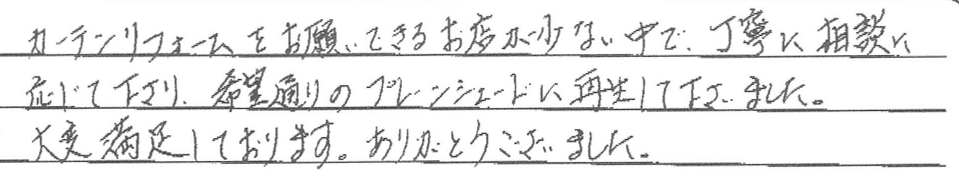 カーテンリフォームをお願いできるお店が少ない中で、丁寧に相談に
応じて下さり、希望通りのプレーンシェードに再生して下さいました。
大変満足しております。ありがとうございました。